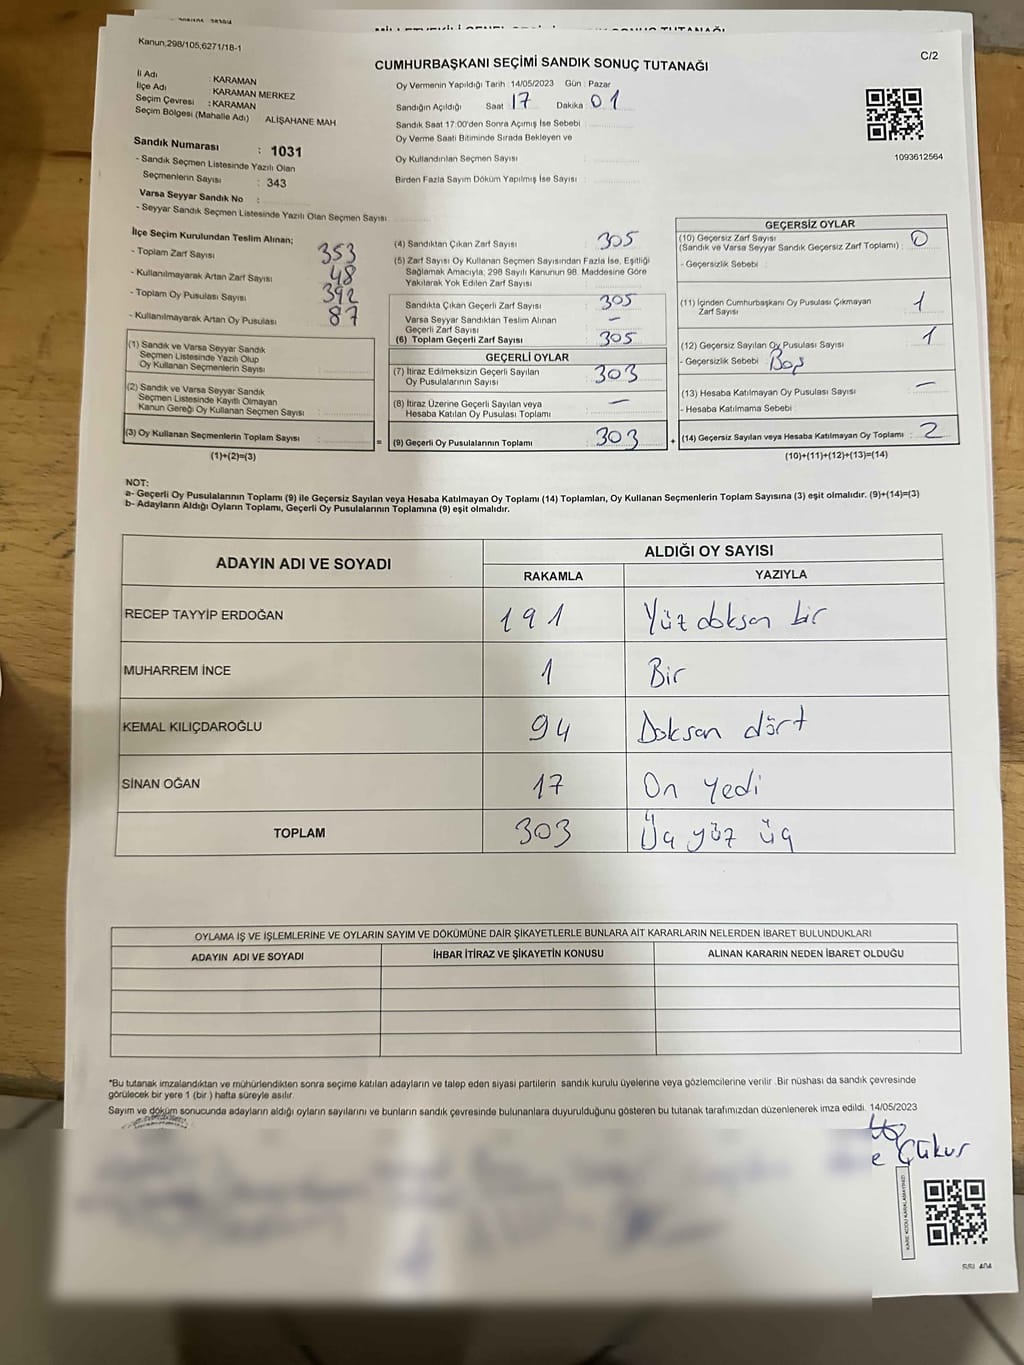 Kanun;298/105,6271/18-1
C/2
CUMHURBAŞKANI SEÇİMİ SANDIK SONUÇ TUTANAĞI
İl Adı : KARAMAN
İlçe Adı KARAMAN MERKEZ
Seçim Çevresi : KARAMAN
Seçim Bölgesi (Mahalle Adı) ALİŞAHANE MAH
Sandık Numarası : 1031
- Sandık Seçmen Listesinde Yazılı Olan
Seçmenlerin Sayısı : 343
Varsa Seyyar Sandık No :
- Seyyar Sandık Seçmen Listesinde Yazılı Olan Seçmen Sayısı
Oy Vermenin Yapıldığı Tarih : 14/05/2023 Gün : Pazar
Sandığın Açıldığı Saat 17 Dakika 01
Sandık Saat 17:00'den Sonra Açımış İse Sebebi :
Oy Verme Saati Bitiminde Sırada Bekleyen ve
Oy Kullandırılan Seçmen Sayısı
Birden Fazla Sayım Döküm Yapılmış İse Sayısı :
1093612564
İlçe Seçim Kurulundan Teslim Alınan;
- Toplam Zarf Sayısı 353
- Kullanılmayarak Artan Zarf Sayısı 48
- Toplam Oy Pusulası Sayısı 392
- Kullanılmayarak Artan Oy Pusulası 87
(1) Sandık ve Varsa Seyyar Sandık
Seçmen Listesinde Yazılı Olup
Oy Kullanan Seçmenlerin Sayısı
(2) Sandık ve Varsa Seyyar Sandık
Seçmen Listesinde Kayıtlı Olmayan
Kanun Gereği Oy Kullanan Seçmen Sayısı
(3) Oy Kullanan Seçmenlerin Toplam Sayısı :
(1)+(2)=(3)
(4) Sandıktan Çıkan Zarf Sayısı : 305
(5) Zarf Sayısı Oy Kullanan Seçmen Sayısından Fazla İse, Eşitliği
Sağlamak Amacıyla, 298 Sayılı Kanunun 98. Maddesine Göre
Yakılarak Yok Edilen Zarf Sayısı
Sandıkta Çıkan Geçerli Zarf Sayısı : 305
Varsa Seyyar Sandıktan Teslim Alınan
Geçerli Zarf Sayısı –
(6) Toplam Geçerli Zarf Sayısı 305
GEÇERLİ OYLAR
(7) İtiraz Edilmeksizin Geçerli Sayılan
Oy Pusulalarının Sayısı 303
(8) İtiraz Üzerine Geçerli Sayılan veya
Hesaba Katılan Oy Pusulası Toplamı –
= (9) Geçerli Oy Pusulalarının Toplamı 303
GEÇERSİZ OYLAR
(10) Geçersiz Zarf Sayısı
(Sandık ve Varsa Seyyar Sandık Geçersiz Zarf Toplamı) : 0
- Geçersizlik Sebebi :
(11) İçinden Cumhurbaşkanı Oy Pusulası Çıkmayan
Zarf Sayısı 1
(12) Geçersiz Sayılan Oy Pusulası Sayısı 1
- Geçersizlik Sebebi : Boş
(13) Hesaba Katılmayan Oy Pusulası Sayısı –
- Hesaba Katılmama Sebebi
+ (14) Geçersiz Sayılan veya Hesaba Katılmayan Oy Toplamı : 2
(10)+(11)+(12)+(13)=(14)
NOT:
a- Geçerli Oy Pusulalarının Toplamı (9) ile Geçersiz Sayılan veya Hesaba Katılmayan Oy Toplamı (14) Toplamları, Oy Kullanan Seçmenlerin Toplam Sayısına (3) eşit olmalıdır. (9)+(14)=(3)
b- Adayların Aldığı Oyların Toplamı, Geçerli Oy Pusulalarının Toplamına (9) eşit olmalıdır.
ADAYIN ADI VE SOYADI ALDIĞI OY SAYISI
RAKAMLA YAZIYLA
RECEP TAYYİP ERDOĞAN 191 Yüz doksan bir
MUHARREM İNCE 1 Bir
KEMAL KILIÇDAROĞLU 94 Doksan dört
SİNAN OĞAN 17 On yedi
TOPLAM 303 Üç yüz üç
OYLAMA İŞ VE İŞLEMLERİNE VE OYLARIN SAYIM VE DÖKÜMÜNE DAİR ŞİKAYETLERLE BUNLARA AİT KARARLARIN NELERDEN İBARET BULUNDUKLARI
ADAYIN ADI VE SOYADI İHBAR İTİRAZ VE ŞİKAYETİN KONUSU ALINAN KARARIN NEDEN İBARET OLDUĞU
*Bu tutanak imzalandıktan ve mühürlendikten sonra seçime katılan adayların ve talep eden siyasi partilerin sandık kurulu üyelerine veya gözlemcilerine verilir .Bir nüshası da sandık çevresinde
görülecek bir yere 1 (bir ) hafta süreyle asılır.
Sayım ve döküm sonucunda adayların aldığı oyların sayılarını ve bunların sandık çevresinde bulunanlara duyurulduğunu gösteren bu tutanak tarafımızdan düzenlenerek imza edildi. 14/05/2023
e Çukur